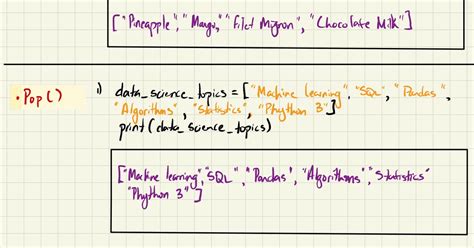 ["Pineapple", "Mango," "Filet Mignon", "Chocolate Milk"]
• Pop()
1) data_science_topics = ["Machine learning", "SQL", "Pandas",
"Algorithms", "Statistics", "Phython 3"]
print(data_science_topics)
["Machine learning", "SQL", "Pandas", "Algorithms", "Statistics"
"Phython 3"]